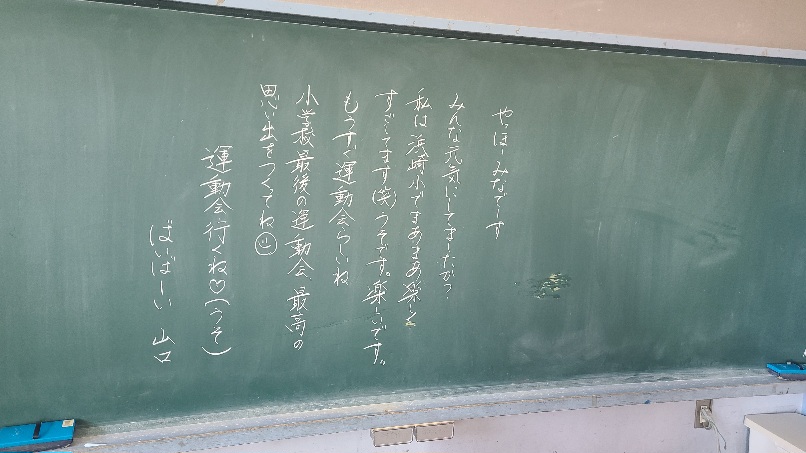 やっほーみなでーす
みんな元気にしてましたかっ?
私は浜崎小でまあまあ楽しく
すごしてます(笑)うそです。楽しいです。
もうすぐ運動会らしいね
小学校最後の運動会、最高の
思い出をつくってね
運動会行くね♡(うそ)
ばいばーい 山口